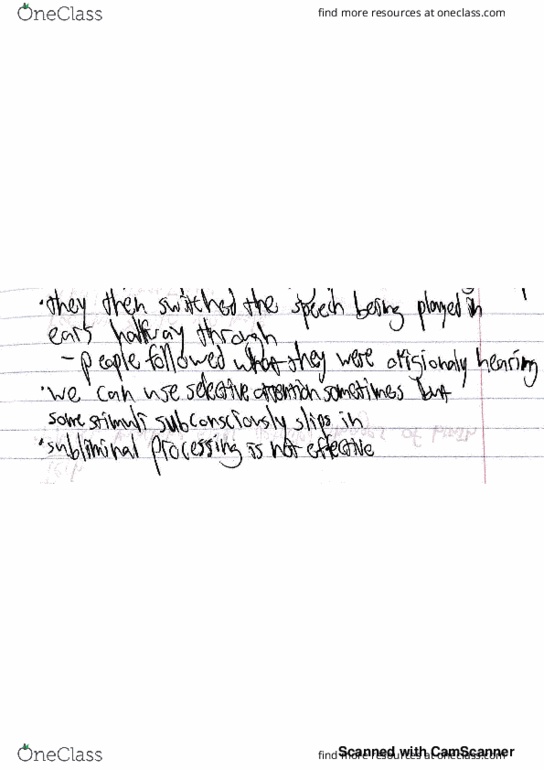 OneClass find more resources at oneclass.com
• they then switched the speech being played in
ears halfway through
- people followed what they were origionaly hearing
• we can use selective attention sometimes but
some stimuli subconsciously slips in
• subliminal processing is not effective
OneClass find more resources at oneclass.com
Scanned with CamScanner